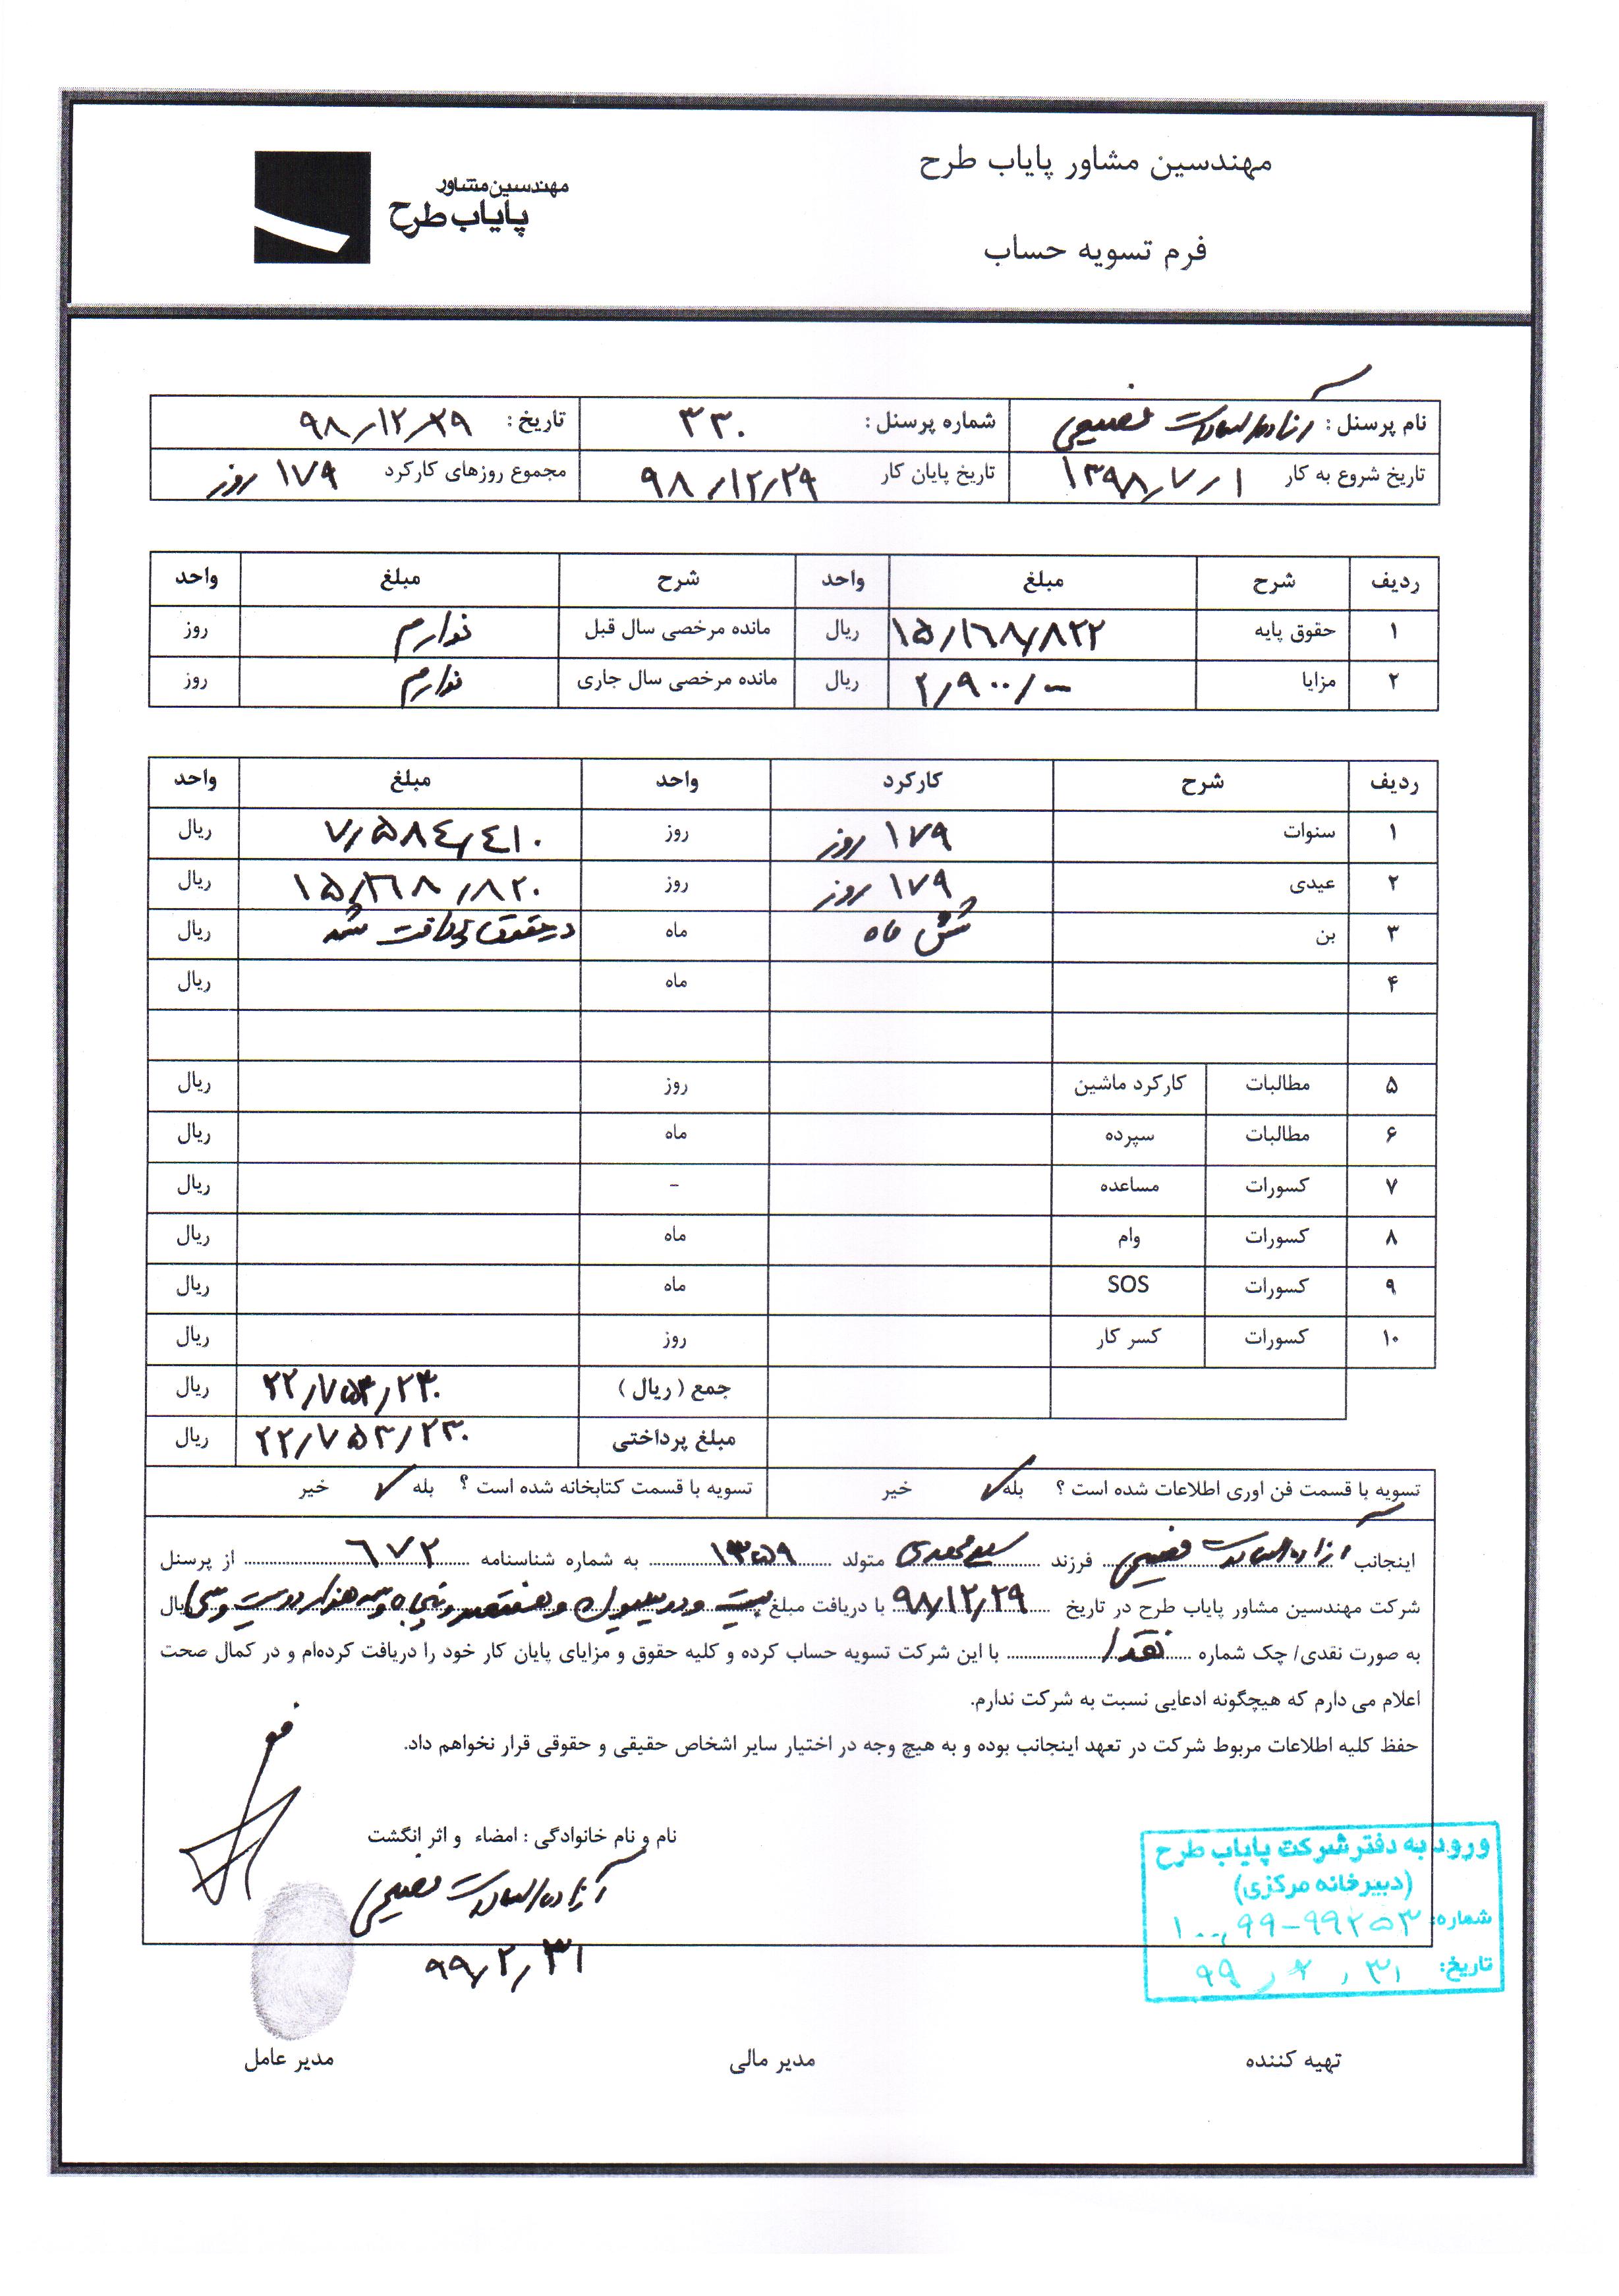 مهندسین مشاور پایاب طرح
مهندسین مشاور
پایاب طرح
فرم تسویه حساب
نام پرسنل : آزاده السادات فصیحی شماره پرسنل : ۳۳۰ تاریخ : ۹۸/۱۲/۲۹
تاریخ شروع به کار ۱۳۹۸/۷/۱ تاریخ پایان کار ۹۸/۱۲/۲۹ مجموع روزهای کارکرد ۱۷۹ روز
ردیف شرح مبلغ واحد شرح مبلغ واحد
۱ حقوق پایه ۱۵/۱۶۸/۸۲۲ ریال مانده مرخصی سال قبل ندارم روز
۲ مزایا ۲/۹۰۰/۰۰۰ ریال مانده مرخصی سال جاری ندارم روز
ردیف شرح کارکرد واحد مبلغ واحد
۱ سنوات ۱۷۹ روز روز ۷/۵۸۴/۴۱۰ ریال
۲ عیدی ۱۷۹ روز روز ۱۵/۱۶۸/۸۲۰ ریال
۳ بن شش ماه ماه در حقوق پرداخت شد ریال
۴ ماه ریال
۵ مطالبات کارکرد ماشین روز ریال
۶ مطالبات سپرده ماه ریال
۷ کسورات مساعده - ریال
۸ کسورات وام ماه ریال
۹ کسورات SOS ماه ریال
۱۰ کسورات کسر کار روز ریال
جمع ( ریال ) ۲۲/۷۵۳/۲۳۰ ریال
مبلغ پرداختی ۲۲/۷۵۳/۲۳۰ ریال
تسویه با قسمت فن اوری اطلاعات شده است ؟ بله ✓ خیر تسویه با قسمت کتابخانه شده است ؟ بله ✓ خیر
اینجانب آزاده السادات فصیحی فرزند متولد ۱۳۵۹ به شماره شناسنامه ۶۷۲ از پرسنل
شرکت مهندسین مشاور پایاب طرح در تاریخ ۹۸/۱۲/۲۹ با دریافت مبلغ بیست و دو میلیون و هفتصد و پنجاه و سه هزار و دویست و سی ریال
به صورت نقدی/ چک شماره نقداً با این شرکت تسویه حساب کرده و کلیه حقوق و مزایای پایان کار خود را دریافت کرده‌ام و در کمال صحت
اعلام می دارم که هیچگونه ادعایی نسبت به شرکت ندارم.
حفظ کلیه اطلاعات مربوط شرکت در تعهد اینجانب بوده و به هیچ وجه در اختیار سایر اشخاص حقیقی و حقوقی قرار نخواهم داد.
نام و نام خانوادگی : امضاء و اثر انگشت
آزاده السادات فصیحی
۹۹/۲/۳۱
ورود به دفتر شرکت پایاب طرح
(دبیرخانه مرکزی)
شماره: ۱۰۰٫۹۹-۹۹۲۵۳
تاریخ: ۹۹/۲/۳۱
تهیه کننده مدیر مالی مدیر عامل